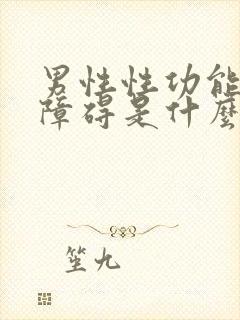 男性性功能
障碍是什麼
笙九